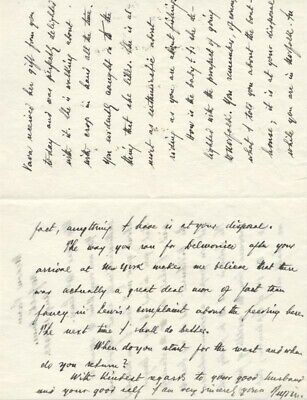 Vava received her gift from you
to-day and was perfectly delighted
with it. She is walking about
with crop in hand all the time.
You evidently caught is to the
thing that she likes. She is al-
most as enthusiastic about
riding as you are about fishing
How is the baby? Is she de-
lighted with the prospect of going
to Norfolk. You remember, of course,
what I told you about the boat-
house; it is at your disposal
while you are in Norfolk. In
fact, anything I have is at your disposal.
The way you ran for Delmonico after your
arrival at New York makes me believe that there
was actually a great deal more of fact than
fancy in Lewis' complaint about the feeding here.
The next time I shall do better.
When do you start for the west and when
do you return?
With kindest regards to your good husband
and your good self I am very sincerely yours Pupin